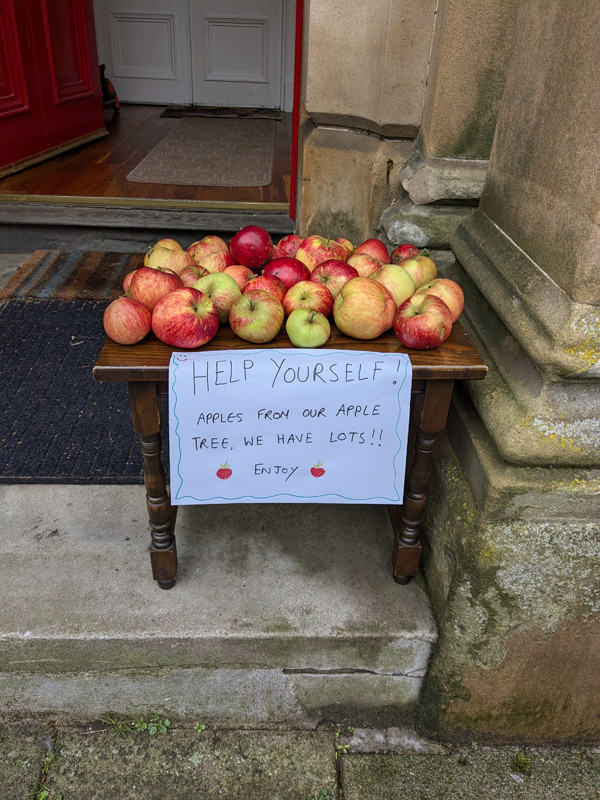 HELP YOURSELF!
APPLES FROM OUR APPLE
TREE, WE HAVE LOTS!!
ENJOY